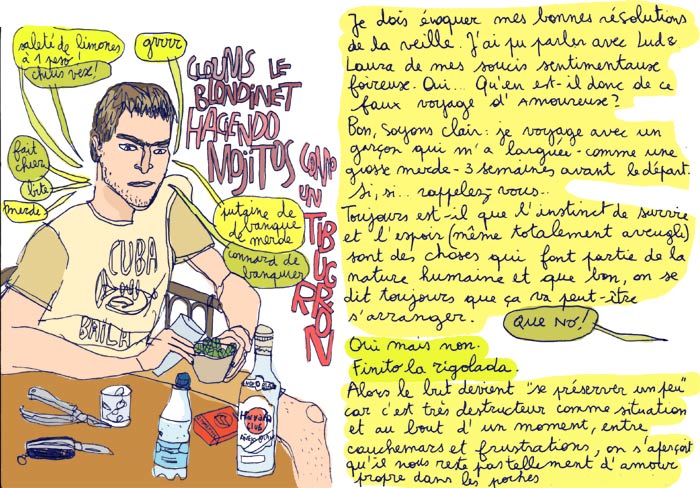 saleté de limones
à 1 peso!
chuis vex!
grrrr
CLOUMS LE
BLONDINET
HACENDO
MOJITOS COMO
UN
TIBURRÓN
fait
chier
bite
merde
putaine de
banque de
merde
connard de
banquier
CUBA
BAILA
Havana
Club
Je dois évoquer mes bonnes résolutions
de la veille. J'ai pu parler avec Lud &
Laura de mes soucis sentimentaux
foireux. Oui... Qu'en est-il donc de ce
faux voyage d'Amoureux?
Bon, Soyons clair: je voyage avec un
garçon qui m'a larguée - comme une
grosse merde - 3 semaines avant le départ.
Si, si.. rappelez-vous..
Toujours est-il que l'instinct de survie
et l'espoir (même totalement aveugle)
sont des choses qui font partie de la
nature humaine et que bon, on se
dit toujours que ça va peut-être
s'arranger.
QUE NO!
Oui mais non.
Finito la rigolada.
Alors le but devient "se préserver un peu"
car c'est très destructeur comme situation
et au bout d'un moment, entre
cauchemars et frustrations, on s'aperçoit
qu'il nous reste pas tellement d'amour
propre dans les poches